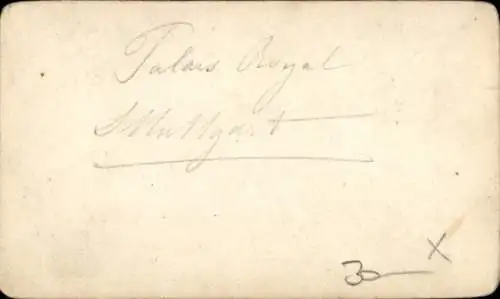 Palais Royal
Stuttgart
X
30